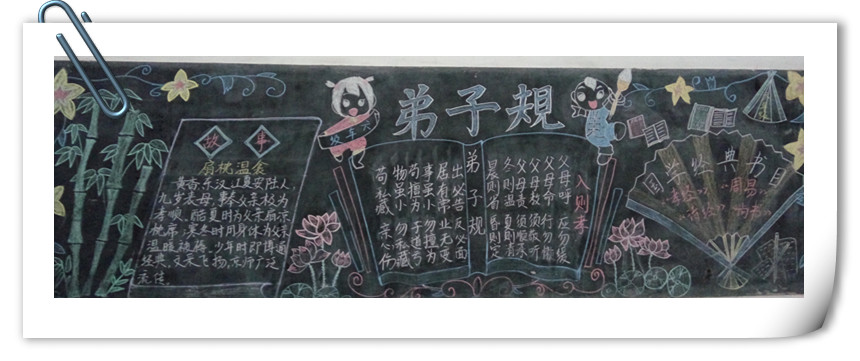 弟子规
故事
扇枕温衾
黄香,东汉江夏安陆人,
九岁丧母,事父亲极为
孝顺,酷夏时为父亲扇凉
枕席;寒冬时用身体为父亲
温暖被褥。少年时即博通
经典,文采飞扬,京师广泛
流传。
弟子规
入则孝
父母呼 应勿缓
父母命 行勿懒
父母教 须敬听
父母责 须顺承
冬则温 夏则凊
晨则省 昏则定
出必告 反必面
居有常 业无变
事虽小 勿擅为
苟擅为 子道亏
物虽小 勿私藏
苟私藏 亲心伤
国学经典书目
《周易》